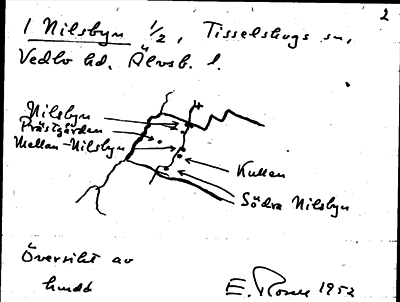 2
1 Nilsbyn 1/2, Tisselskogs sn,
Vedbo hd. Älvsb. l.
Nilsbyn
Prästgården
Mellan-Nilsbyn
Kullen
Södra Nilsbyn
Översikt av
E. Rosell 1952